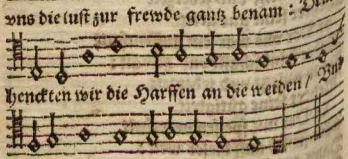 vns die lust zur frewde gantz benam:
henckten wir die Harffen an die weiden/